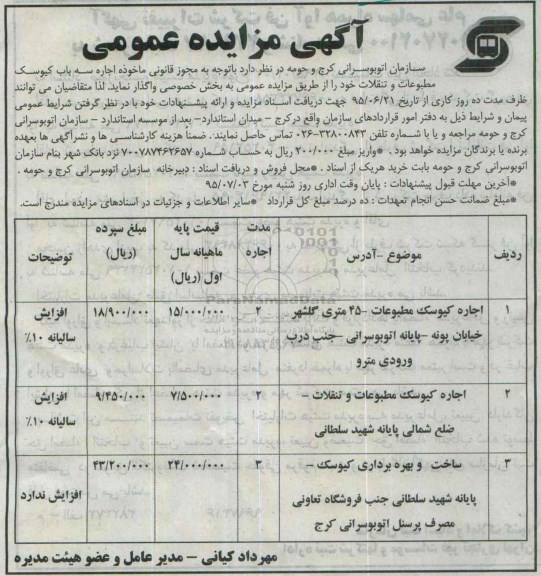 آگهی مزایده عمومی
سازمان اتوبوسرانی کرج و حومه در نظر دارد باتوجه به مجوز قانونی ماخوذه اجاره سه باب کیوسک
مطبوعات و تنقلات خود را از طریق مزایده عمومی به بخش خصوصی واگذار نماید. لذا متقاضیان می توانند
ظرف مدت ده روز کاری از تاریخ ۹۵/۰۶/۲۱ جهت دریافت اسناد مزایده و ارائه پیشنهادات خود با در نظر گرفتن شرایط عمومی
پیمان و شرایط ذیل به دفتر امور قراردادهای سازمان واقع در کرج – میدان استاندارد- بعد از موسسه استاندارد – سازمان اتوبوسرانی
کرج و حومه مراجعه و یا با شماره تلفن ۳۲۸۰۰۸۴۳-۰۲۶ تماس حاصل نمایند. ضمنا هزینه کارشناسی ها و نشرآگهی ها بعهده
برنده یا برندگان مزایده خواهد بود . *واریز مبلغ ۲۰۰/۰۰۰ ریال به حساب شماره ۷۰۰۷۸۷۴۶۲۶۵۷ نزد بانک شهر بنام سازمان
اتوبوسرانی کرج و حومه بابت خرید هریک از اسناد . *محل فروش و دریافت اسناد : دبیرخانه سازمان اتوبوسرانی کرج و حومه .
*آخرین مهلت قبول پیشنهادات : پایان وقت اداری روز شنبه مورخ ۹۵/۰۷/۰۳
*مبلغ ضمانت حسن انجام تعهدات : ده درصد مبلغ کل قرارداد *سایر اطلاعات و جزئیات در اسنادهای مزایده مندرج است.
ردیف موضوع -آدرس مدت اجاره قیمت پایه ماهیانه سال اول (ریال) مبلغ سپرده (ریال) توضیحات
۱ اجاره کیوسک مطبوعات -۴۵ متری گلشهر ۲ ۱۵/۰۰۰/۰۰۰ ۱۸/۹۰۰/۰۰۰ افزایش
خیابان پونه -پایانه اتوبوسرانی -جنب درب سالیانه ۱۰٪
ورودی مترو
۲ اجاره کیوسک مطبوعات و تنقلات – ۲ ۷/۵۰۰/۰۰۰ ۹/۴۵۰/۰۰۰ افزایش
ضلع شمالی پایانه شهید سلطانی سالیانه ۱۰٪
۳ ساخت و بهره برداری کیوسک – ۳ ۲۴/۰۰۰/۰۰۰ ۴۳/۲۰۰/۰۰۰
پایانه شهید سلطانی جنب فروشگاه تعاونی افزایش ندارد
مصرف پرسنل اتوبوسرانی کرج
مهرداد کیانی – مدیر عامل و عضو هیئت مدیره